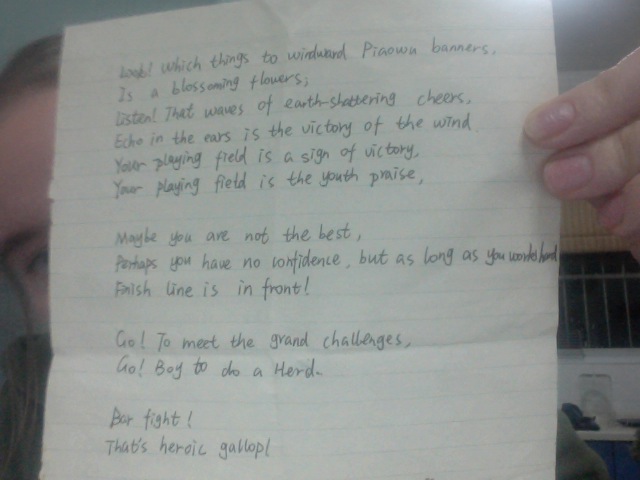 Look! Which things to windward Piaowu banners,
Is a blossoming flowers;
Listen! That waves of earth-shattering cheers,
Echo in the ears is the victory of the wind.
Your playing field is a sign of victory,
Your playing field is the youth praise,
Maybe you are not the best,
Perhaps you have no confidence, but as long as you worked hard
Finish line is in front!
Go! To meet the grand challenges,
Go! Boy to do a Hero.
Bar fight!
That's heroic gallop!